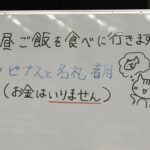 昼ご飯を食べに行きます
ビブスと名札着用
(お金はいりません)